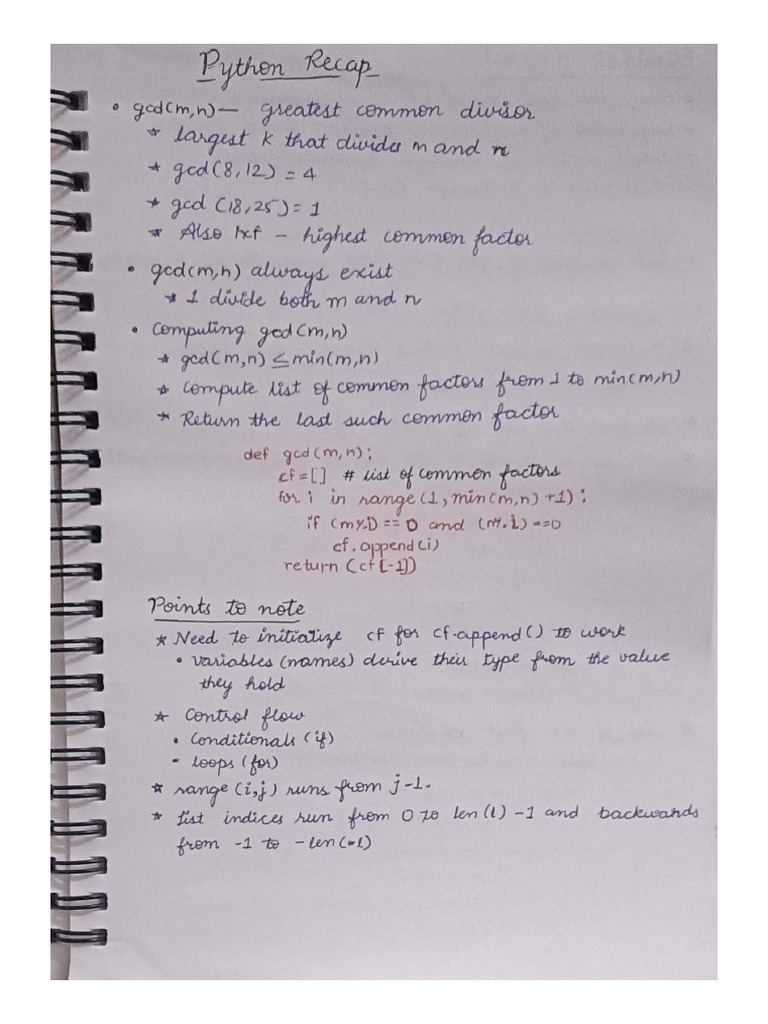 Python Recap
• gcd(m,n) — greatest common divisor
* largest k that divides m and n
* gcd(8,12) = 4
* gcd (18,25) = 1
* Also hcf - highest common factor
• gcd(m,n) always exist
* 1 divide both m and n
• Computing gcd(m,n)
* gcd(m,n) ≤ min(m,n)
* Compute list of common factors from 1 to min(m,n)
* Return the last such common factor
def gcd(m,n):
cf=[] # list of common factors
for i in range(1,min(m,n)+1):
if (m%i) == 0 and (n%i) ==0
cf.append(i)
return (cf[-1])
Points to note
* Need to initialize cf for cf.append() to work
• variables (names) derive their type from the value
they hold
* Control flow
• Conditionals (if)
- loops (for)
* range (i,j) runs from j-1.
* list indices run from 0 to len(l) -1 and backwards
from -1 to -len(-l)